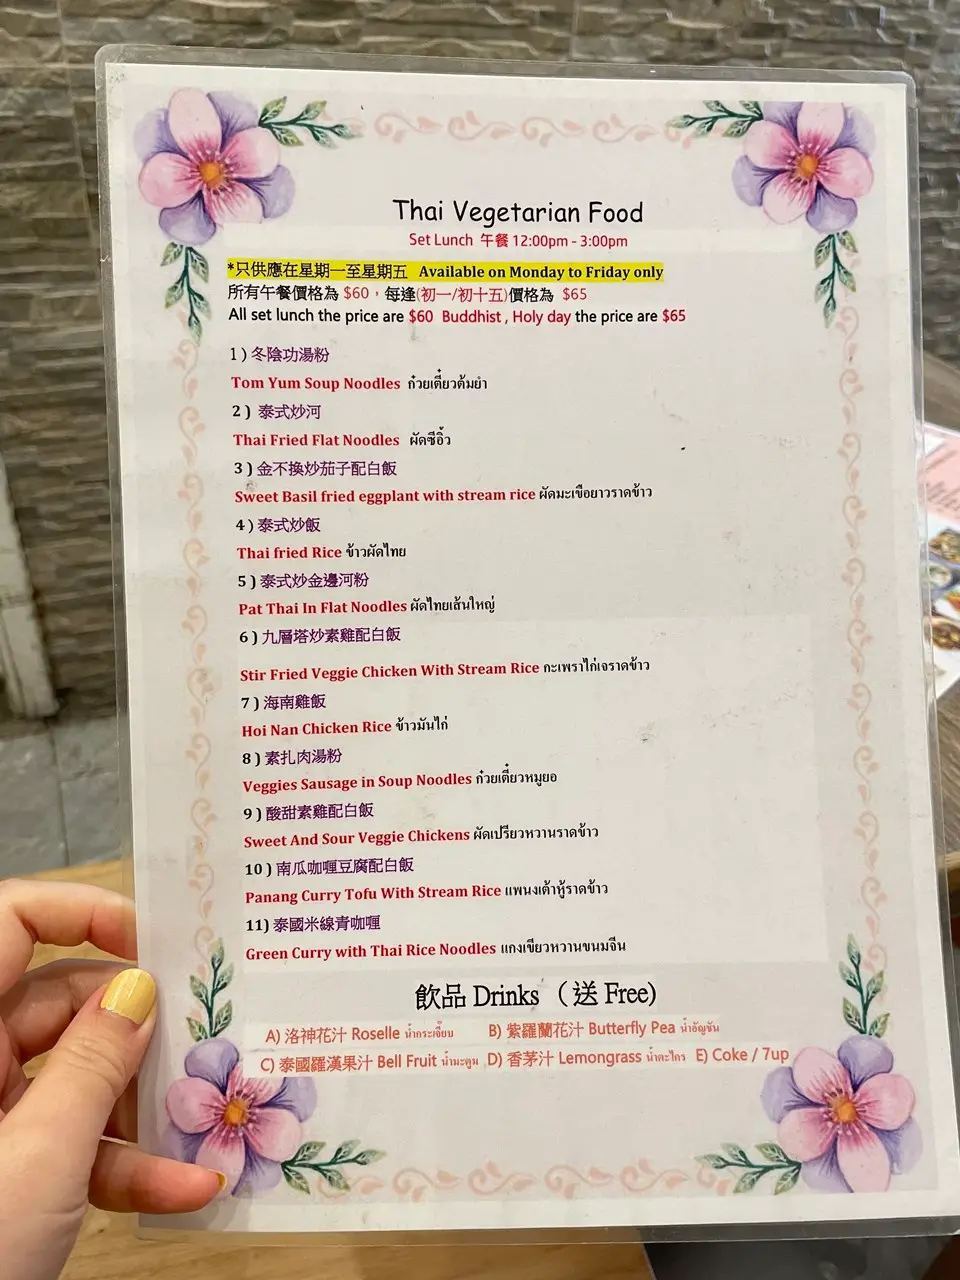 Thai Vegetarian Food
Set Lunch 午餐 12:00pm - 3:00pm
*只供應在星期一至星期五 Available on Monday to Friday only
所有午餐價格為 $60，每逢(初一/初十五)價格為 $65
All set lunch the price are $60 Buddhist , Holy day the price are $65
1 ) 冬陰功湯粉
Tom Yum Soup Noodles ก๋วยเตี๋ยวต้มยำ
2 ) 泰式炒河
Thai Fried Flat Noodles ผัดซีอิ้ว
3 ) 金不換炒茄子配白飯
Sweet Basil fried eggplant with stream rice ผัดมะเขือยาวราดข้าว
4 ) 泰式炒飯
Thai fried Rice ข้าวผัดไทย
5 ) 泰式炒金邊河粉
Pat Thai In Flat Noodles ผัดไทยเส้นใหญ่
6 ) 九層塔炒素雞配白飯
Stir Fried Veggie Chicken With Stream Rice กะเพราไก่เจราดข้าว
7 ) 海南雞飯
Hoi Nan Chicken Rice ข้าวมันไก่
8 ) 素扎肉湯粉
Veggies Sausage in Soup Noodles ก๋วยเตี๋ยวหมูยอ
9 ) 酸甜素雞配白飯
Sweet And Sour Veggie Chickens ผัดเปรียวหวานราดข้าว
10 ) 南瓜咖喱豆腐配白飯
Panang Curry Tofu With Stream Rice แพนงเต้าหู้ราดข้าว
11) 泰國米線青咖喱
Green Curry with Thai Rice Noodles แกงเขียวหวานขนมจีน
飲品 Drinks （送 Free)
A) 洛神花汁 Roselle น้ำกระเจี๊ยบ B) 紫羅蘭花汁 Butterfly Pea น้ำอัญชัน
C) 泰國羅漢果汁 Bell Fruit น้ำมะตูม D) 香茅汁 Lemongrass น้ำตะไคร E) Coke / 7up